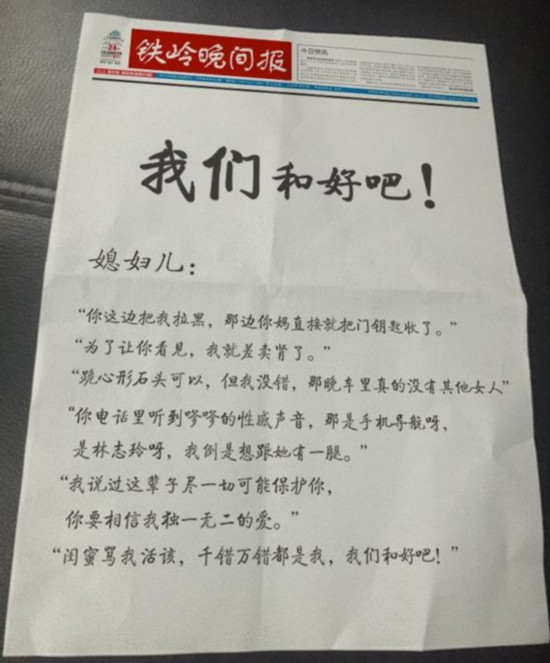 铁岭晚间报
今日快讯
我们和好吧！
媳妇儿：
“你这边把我拉黑，那边你妈直接就把门钥匙收了。”
“为了让你看见，我就差卖肾了。”
“跪心形石头可以，但我没错，那晚车里真的没有其他女人”
“你电话里听到嗲嗲的性感声音，那是手机导航呀，
是林志玲呀，我倒是想跟她有一腿。”
“我说过这辈子尽一切可能保护你，
你要相信我独一无二的爱。”
“闺蜜骂我活该，千错万错都是我，我们和好吧！”